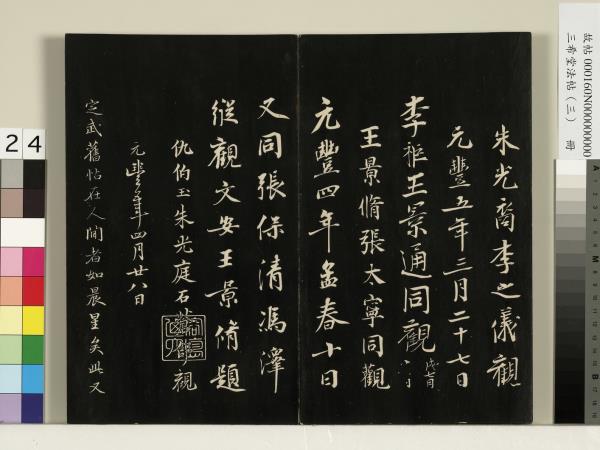 朱光裔李之儀觀
元豐五年三月二十七日
李秬王景通同觀
王景脩張太寧同觀
元豐四年孟春十日
又同張保清馮澤
縱觀文安王景脩題
仇伯玉朱光庭石 觀
元豐 年四月廿八日
定武舊帖在人間者如晨星矣此又
故帖 000160N000000000
三希堂法帖（三） 冊
24
A
M
B